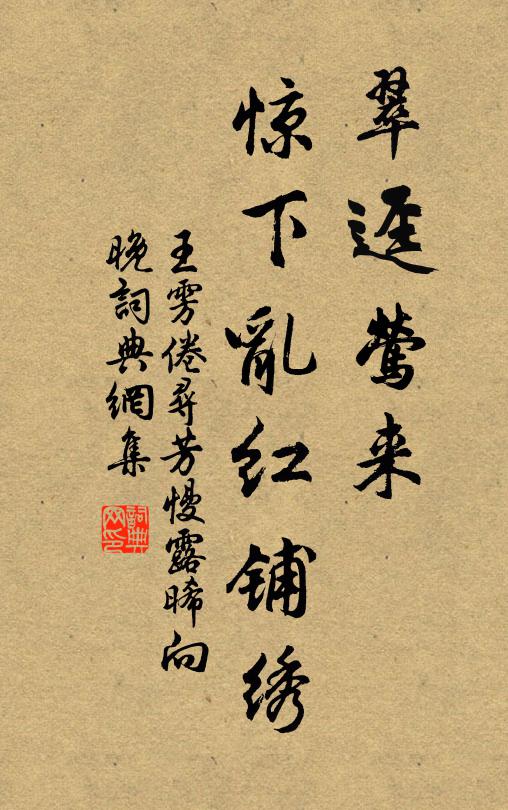 翠逕鶯来
惊下亂红铺绣
王雱倦尋芳慢露晞向
晚詞典網集
詞典网印